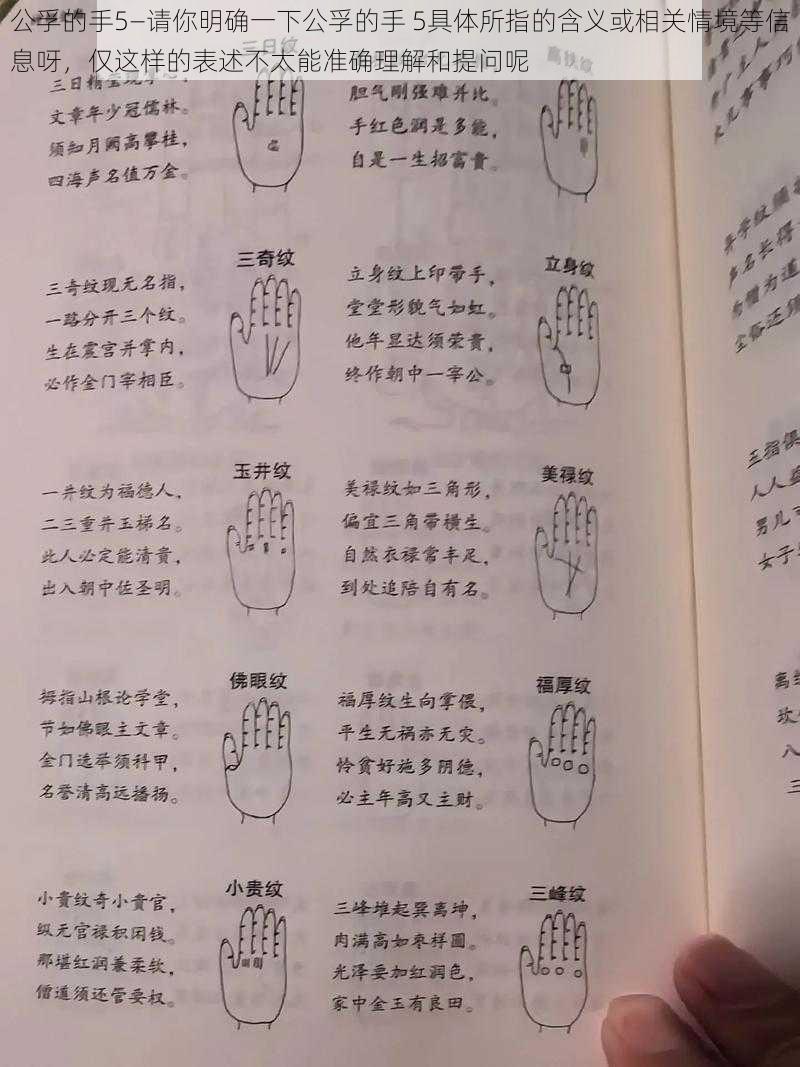 公孚的手5—请你明确一下公孚的手 5具体所指的含义或相关情境等信
息呀，仅这样的表述不太能准确理解和提问呢
三日纹
文章年少冠儒林。
须知月阙高攀桂，
四海声名值万金。
高扶纹
胆气刚强难并比。
手红色润是多能，
自是一生招富贵。
三奇纹
三奇纹现无名指，
一路分开三个纹。
生在震宫并掌内，
必作金门宰相臣。
立身纹
立身纹上印带手，
堂堂形貌气如虹。
他年显达须荣贵，
终作朝中一宰公。
玉井纹
一井纹为福德人，
二三重井玉梯名。
此人必定能清贵，
出入朝中佐圣明。
美禄纹
美禄纹如三角形，
偏宜三角带横生。
自然衣禄常丰足，
到处追陪自有名。
佛眼纹
拇指山根论学堂，
节如佛眼主文章。
金门选举须科甲，
名誉清高远播扬。
福厚纹
福厚纹生向掌偎，
平生无祸亦无灾。
怜贫好施多阴德，
必主年高又主财。
小贵纹
小贵纹奇小贵官，
纵无官禄积闲钱。
那堪红润兼柔软，
僧道须还管要权。
三峰纹
三峰堆起巽离坤，
肉满高如枣样圆。
光泽要加红润色，
家中金玉有良田。